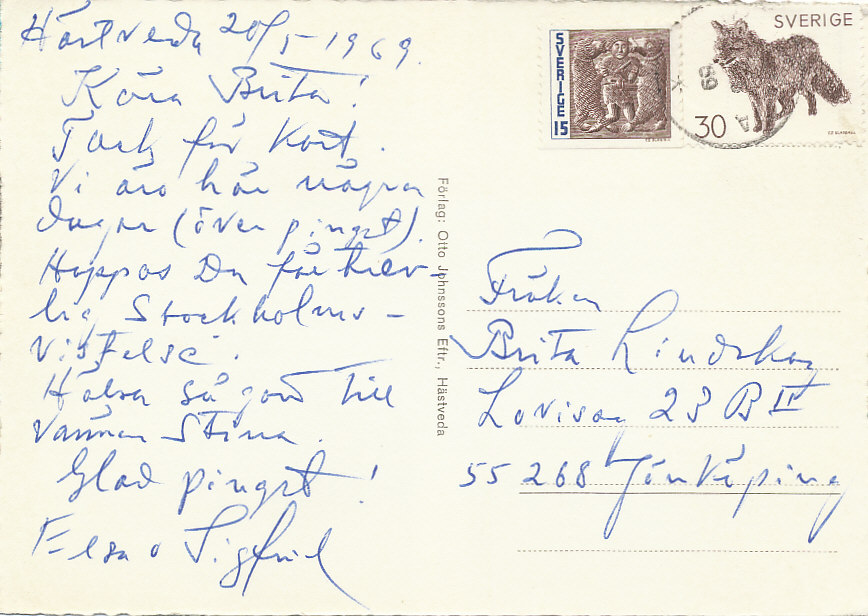 Hästveda 20/5-1969.
Kära Brita!
Tack för kort.
Vi äro här några
dagar (över pingst).
Hoppas Du får trev-
lig Stockholms-
vistelse.
Hälsa så gott till
vännen Stina.
Glad pingst!
Elsa o Sigfrid
Förlag: Otto Johnssons Eftr., Hästveda
SVERIGE 15
SVERIGE
30
69
Fröken
Brita Lindskog
Lovisag 23 B II
55268 Jönköping